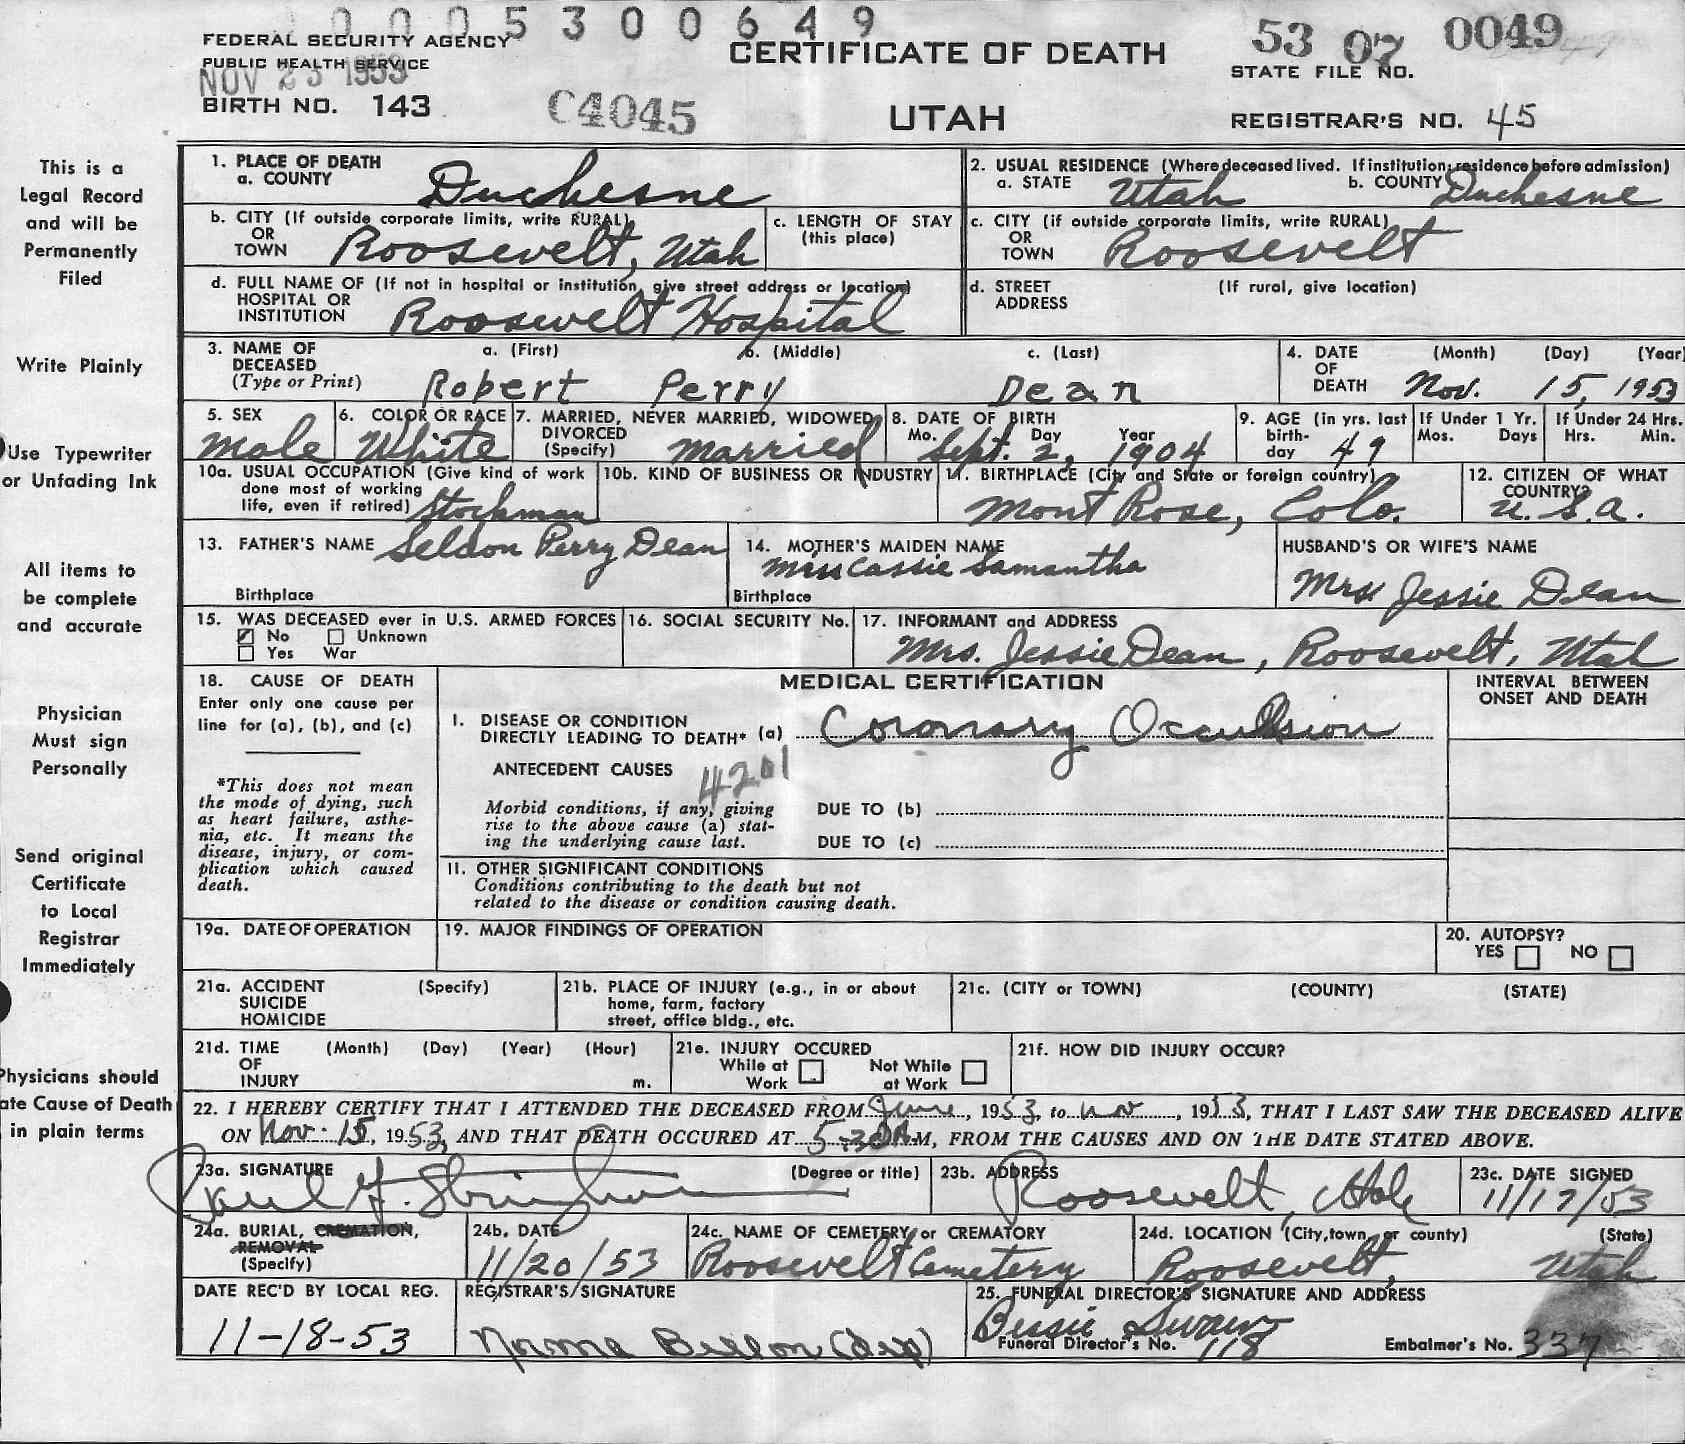 0005300649
FEDERAL SECURITY AGENCY
PUBLIC HEALTH SERVICE
NOV 23 1953
BIRTH NO. 143
C4045
CERTIFICATE OF DEATH
UTAH
53 07 0049
STATE FILE NO.
REGISTRAR'S NO. 45
This is a
Legal Record
and will be
Permanently
Filed
Write Plainly
Use Typewriter
or Unfading Ink
All items to
be complete
and accurate
Physician
Must sign
Personally
Send original
Certificate
to Local
Registrar
Immediately
Physicians should
ate Cause of Death
in plain terms
1. PLACE OF DEATH
a. COUNTY Duchesne
2. USUAL RESIDENCE (Where deceased lived. If institution: residence before admission)
a. STATE Utah b. COUNTY Duchesne
b. CITY (If outside corporate limits, write RURAL)
OR
TOWN Roosevelt, Utah
c. LENGTH OF STAY
(this place)
c. CITY (if outside corporate limits, write RURAL)
OR
TOWN Roosevelt
d. FULL NAME OF (If not in hospital or institution, give street address or location)
HOSPITAL OR
INSTITUTION Roosevelt Hospital
d. STREET (If rural, give location)
ADDRESS
3. NAME OF a. (First) b. (Middle) c. (Last)
DECEASED
(Type or Print) Robert Perry Dean
4. DATE (Month) (Day) (Year)
OF
DEATH Nov. 15, 1953
5. SEX
Male
6. COLOR OR RACE
White
7. MARRIED, NEVER MARRIED, WIDOWED,
DIVORCED
(Specify) Married
8. DATE OF BIRTH
Mo. Day Year
Sept. 2, 1904
9. AGE (in yrs. last
birth-
day 49
If Under 1 Yr.
Mos. Days
If Under 24 Hrs.
Hrs. Min.
10a. USUAL OCCUPATION (Give kind of work
done most of working
life, even if retired) Stockman
10b. KIND OF BUSINESS OR INDUSTRY
11. BIRTHPLACE (City and State or foreign country)
Mont Rose, Colo.
12. CITIZEN OF WHAT
COUNTRY?
U.S.A.
13. FATHER'S NAME Seldon Perry Dean
Birthplace
14. MOTHER'S MAIDEN NAME
Cassie Samantha
Birthplace
HUSBAND'S OR WIFE'S NAME
Mrs Jessie Dean
15. WAS DECEASED ever in U.S. ARMED FORCES
No Unknown
Yes War
16. SOCIAL SECURITY No.
17. INFORMANT and ADDRESS
Mrs. Jessie Dean, Roosevelt, Utah
18. CAUSE OF DEATH
Enter only one cause per
line for (a), (b), and (c)
*This does not mean
the mode of dying, such
as heart failure, asthe-
nia, etc. It means the
disease, injury, or com-
plication which caused
death.
MEDICAL CERTIFICATION
I. DISEASE OR CONDITION
DIRECTLY LEADING TO DEATH* (a) Coronary Occulsion
ANTECEDENT CAUSES
4201
Morbid conditions, if any, giving
rise to the above cause (a) stat-
ing the underlying cause last.
DUE TO (b)
DUE TO (c)
II. OTHER SIGNIFICANT CONDITIONS
Conditions contributing to the death but not
related to the disease or condition causing death.
INTERVAL BETWEEN
ONSET AND DEATH
19a. DATE OF OPERATION
19. MAJOR FINDINGS OF OPERATION
20. AUTOPSY?
YES NO
21a. ACCIDENT (Specify)
SUICIDE
HOMICIDE
21b. PLACE OF INJURY (e.g., in or about
home, farm, factory
street, office bldg., etc.
21c. (CITY or TOWN) (COUNTY) (STATE)
21d. TIME (Month) (Day) (Year) (Hour)
OF
INJURY m.
21e. INJURY OCCURED
While at Work Not While at Work
21f. HOW DID INJURY OCCUR?
22. I HEREBY CERTIFY THAT I ATTENDED THE DECEASED FROM June, 1953, to Nov, 1953, THAT I LAST SAW THE DECEASED ALIVE
ON Nov. 15, 1953, AND THAT DEATH OCCURED AT 5:20 A.M, FROM THE CAUSES AND ON THE DATE STATED ABOVE.
23a. SIGNATURE (Degree or title)
Paul G. Stringham
23b. ADDRESS
Roosevelt, Utah
23c. DATE SIGNED
11/17/53
24a. BURIAL, CREMATION,
REMOVAL
(Specify)
24b. DATE
11/20/53
24c. NAME OF CEMETERY or CREMATORY
Roosevelt Cemetery
24d. LOCATION (City, town, or county) (State)
Roosevelt, Utah
DATE REC'D BY LOCAL REG.
11-18-53
REGISTRAR'S SIGNATURE
Norma (dep)
25. FUNERAL DIRECTOR'S SIGNATURE AND ADDRESS
Bessie
Funeral Director's No. 118
Embalmer's No. 337